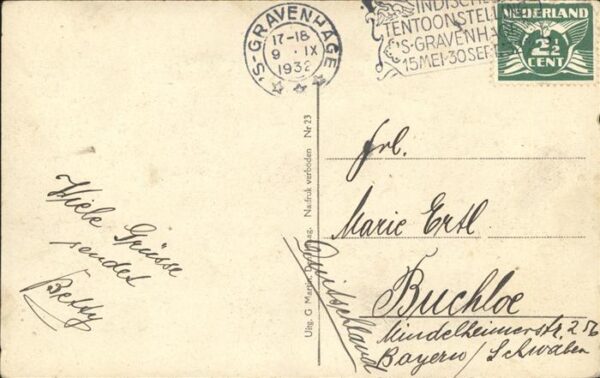 'S-GRAVENHAGE
17-18
9 . IX
1932
INDISCHE
TENTOONSTELL
'S-GRAVENHA
15 MEI-30 SEP
NEDERLAND
2½
CENT
Viele Grüsse
sendet
Betty
Uitg. G Nadruk verboden Nr 23
Frl.
Marie Ertl
Buchloe
Mindelheimerstr.
Bayern / Schwaben
Deutschland